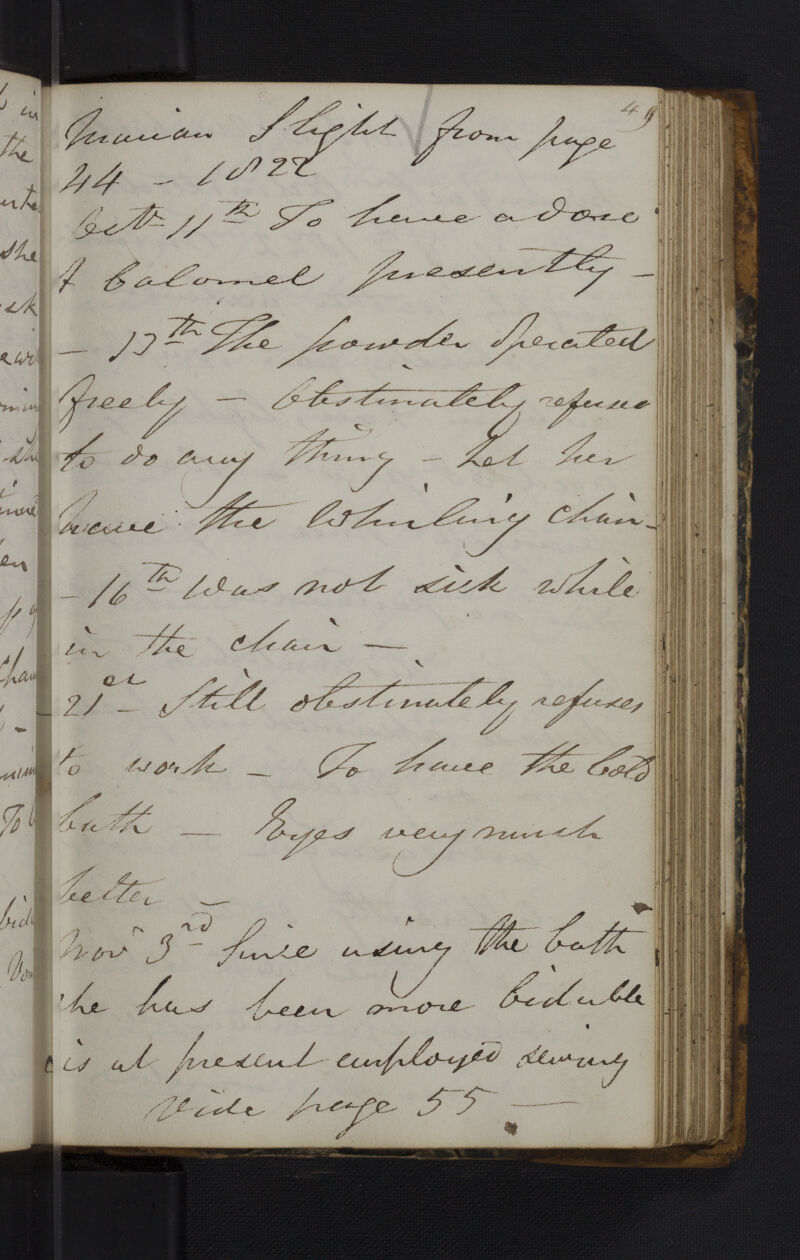 49
Marian Slight from page
44 - 1822
Octr 11th To have a dose
of Calomel presently -
- 13th The powder operated
freely - Obstinately refuses
to do any thing - Let her
have the Whirling chair -
- 16th Was not sick while
in the chair -
- 21st - Still obstinately refuses
to work - To have the Cold
bath - Eyes very much
better -
Novr 3rd Since using the bath
she has been more biduble
is at present employed sewing
Vide page 55 -